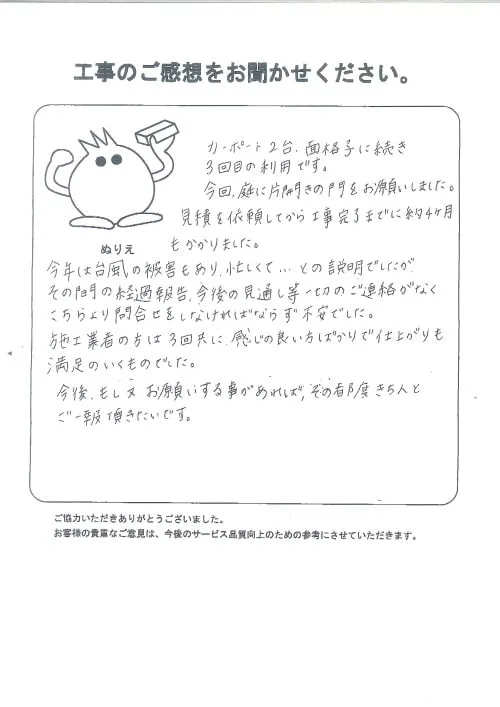 工事のご感想をお聞かせください。
カーポート2台、面格子に続き
3回目の利用です。
今回、庭に片開きの門をお願いしました。
見積を依頼してから工事完了までに約4ヶ月
もかかりました。
ぬりえ
今年は台風の被害もあり、忙しくて…との説明でしたが、
その間の経過報告、今後の見通し等一切のご連絡がなく
こちらより問合せをしなければならず不安でした。
施工業者の方は3回共に、感じの良い方ばかりで仕上がりも
満足のいくものでした。
今後、もし又お願いする事があれば、その都度きちんと
ご一報頂きたいです。
ご協力いただきありがとうございました。
お客様の貴重なご意見は、今後のサービス品質向上のための参考にさせていただきます。